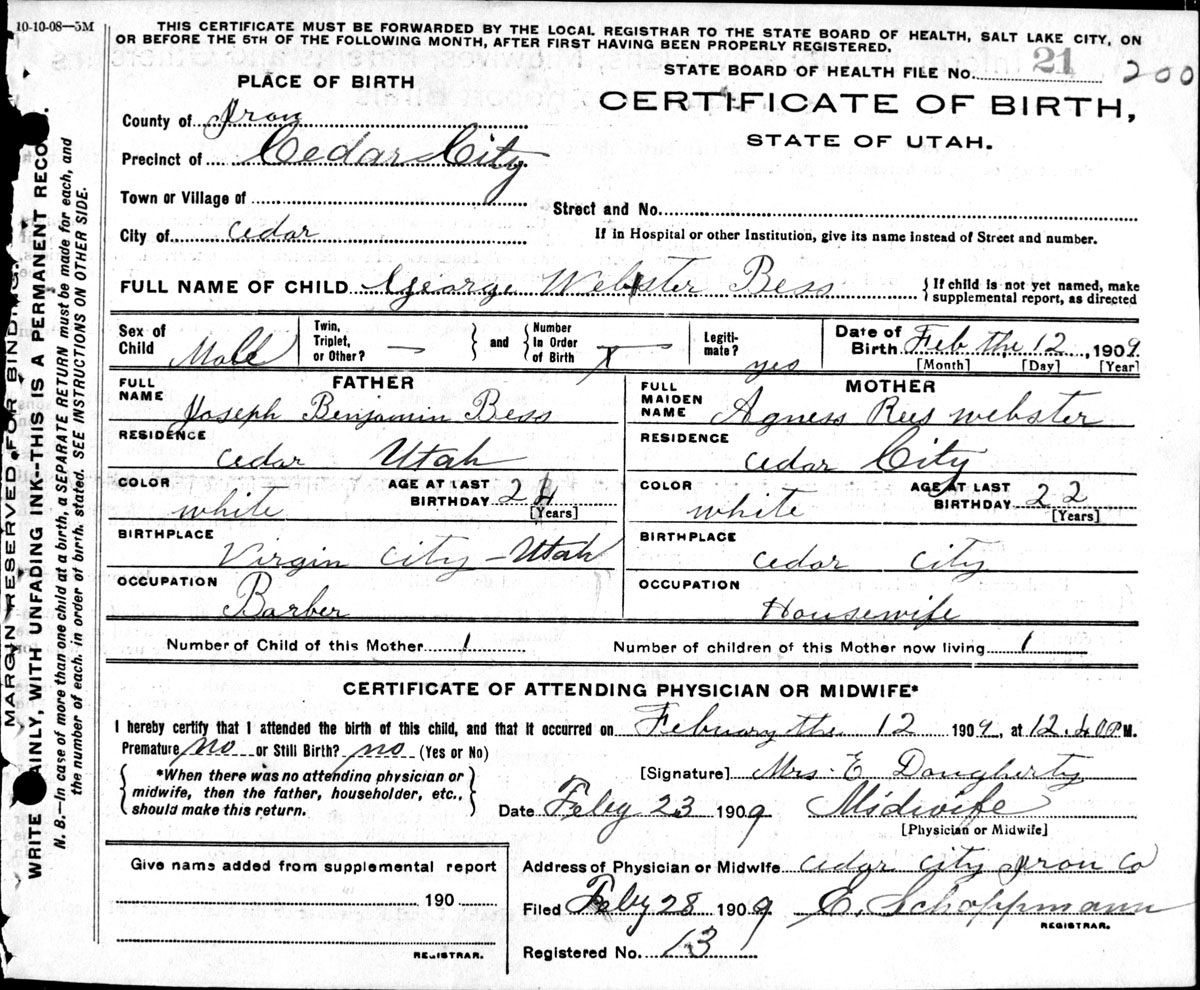 10-10-08—5M
THIS CERTIFICATE MUST BE FORWARDED BY THE LOCAL REGISTRAR TO THE STATE BOARD OF HEALTH, SALT LAKE CITY, ON
OR BEFORE THE 5TH OF THE FOLLOWING MONTH, AFTER FIRST HAVING BEEN PROPERLY REGISTERED.
STATE BOARD OF HEALTH FILE No. 21 200
PLACE OF BIRTH
CERTIFICATE OF BIRTH,
STATE OF UTAH.
County of Iron
Precinct of Cedar City
Town or Village of
Street and No.
City of Cedar
If in Hospital or other Institution, give its name instead of Street and number.
FULL NAME OF CHILD George Webster Bess { If child is not yet named, make supplemental report, as directed
Sex of Child Male
Twin, Triplet, or Other? — } and { Number In Order of Birth
Legiti-mate? yes
Date of Birth Feb the 12, 1909
[Month] [Day] [Year]
FATHER
FULL NAME Joseph Benjamin Bess
RESIDENCE Cedar Utah
COLOR white AGE AT LAST BIRTHDAY 24 [Years]
BIRTHPLACE Virgin City - Utah
OCCUPATION Barber
MOTHER
FULL MAIDEN NAME Agness Rees Webster
RESIDENCE Cedar City
COLOR white AGE AT LAST BIRTHDAY 22 [Years]
BIRTHPLACE Cedar City
OCCUPATION Housewife
Number of Child of this Mother 1 Number of children of this Mother now living 1
CERTIFICATE OF ATTENDING PHYSICIAN OR MIDWIFE*
I hereby certify that I attended the birth of this child, and that it occurred on Febuary the 12 1909, at 12.40 P M.
Premature no or Still Birth? no (Yes or No)
{ *When there was no attending physician or midwife, then the father, householder, etc., should make this return. }
[Signature] Mrs. E Dougherty
Date Feby 23 1909 Midwife
[Physician or Midwife]
Give name added from supplemental report
190
REGISTRAR.
Address of Physician or Midwife Cedar City Iron Co
Filed Feby 28 1909 E. Schoppmann
REGISTRAR.
Registered No. 13
MARGIN RESERVED FOR BINDING.
WRITE AINLY, WITH UNFADING INK--THIS IS A PERMANENT RECO .
N. B.—In case of more than one child at a birth, a SEPARATE RETURN must be made for each, and
the number of each, in order of birth, stated. SEE INSTRUCTIONS ON OTHER SIDE.